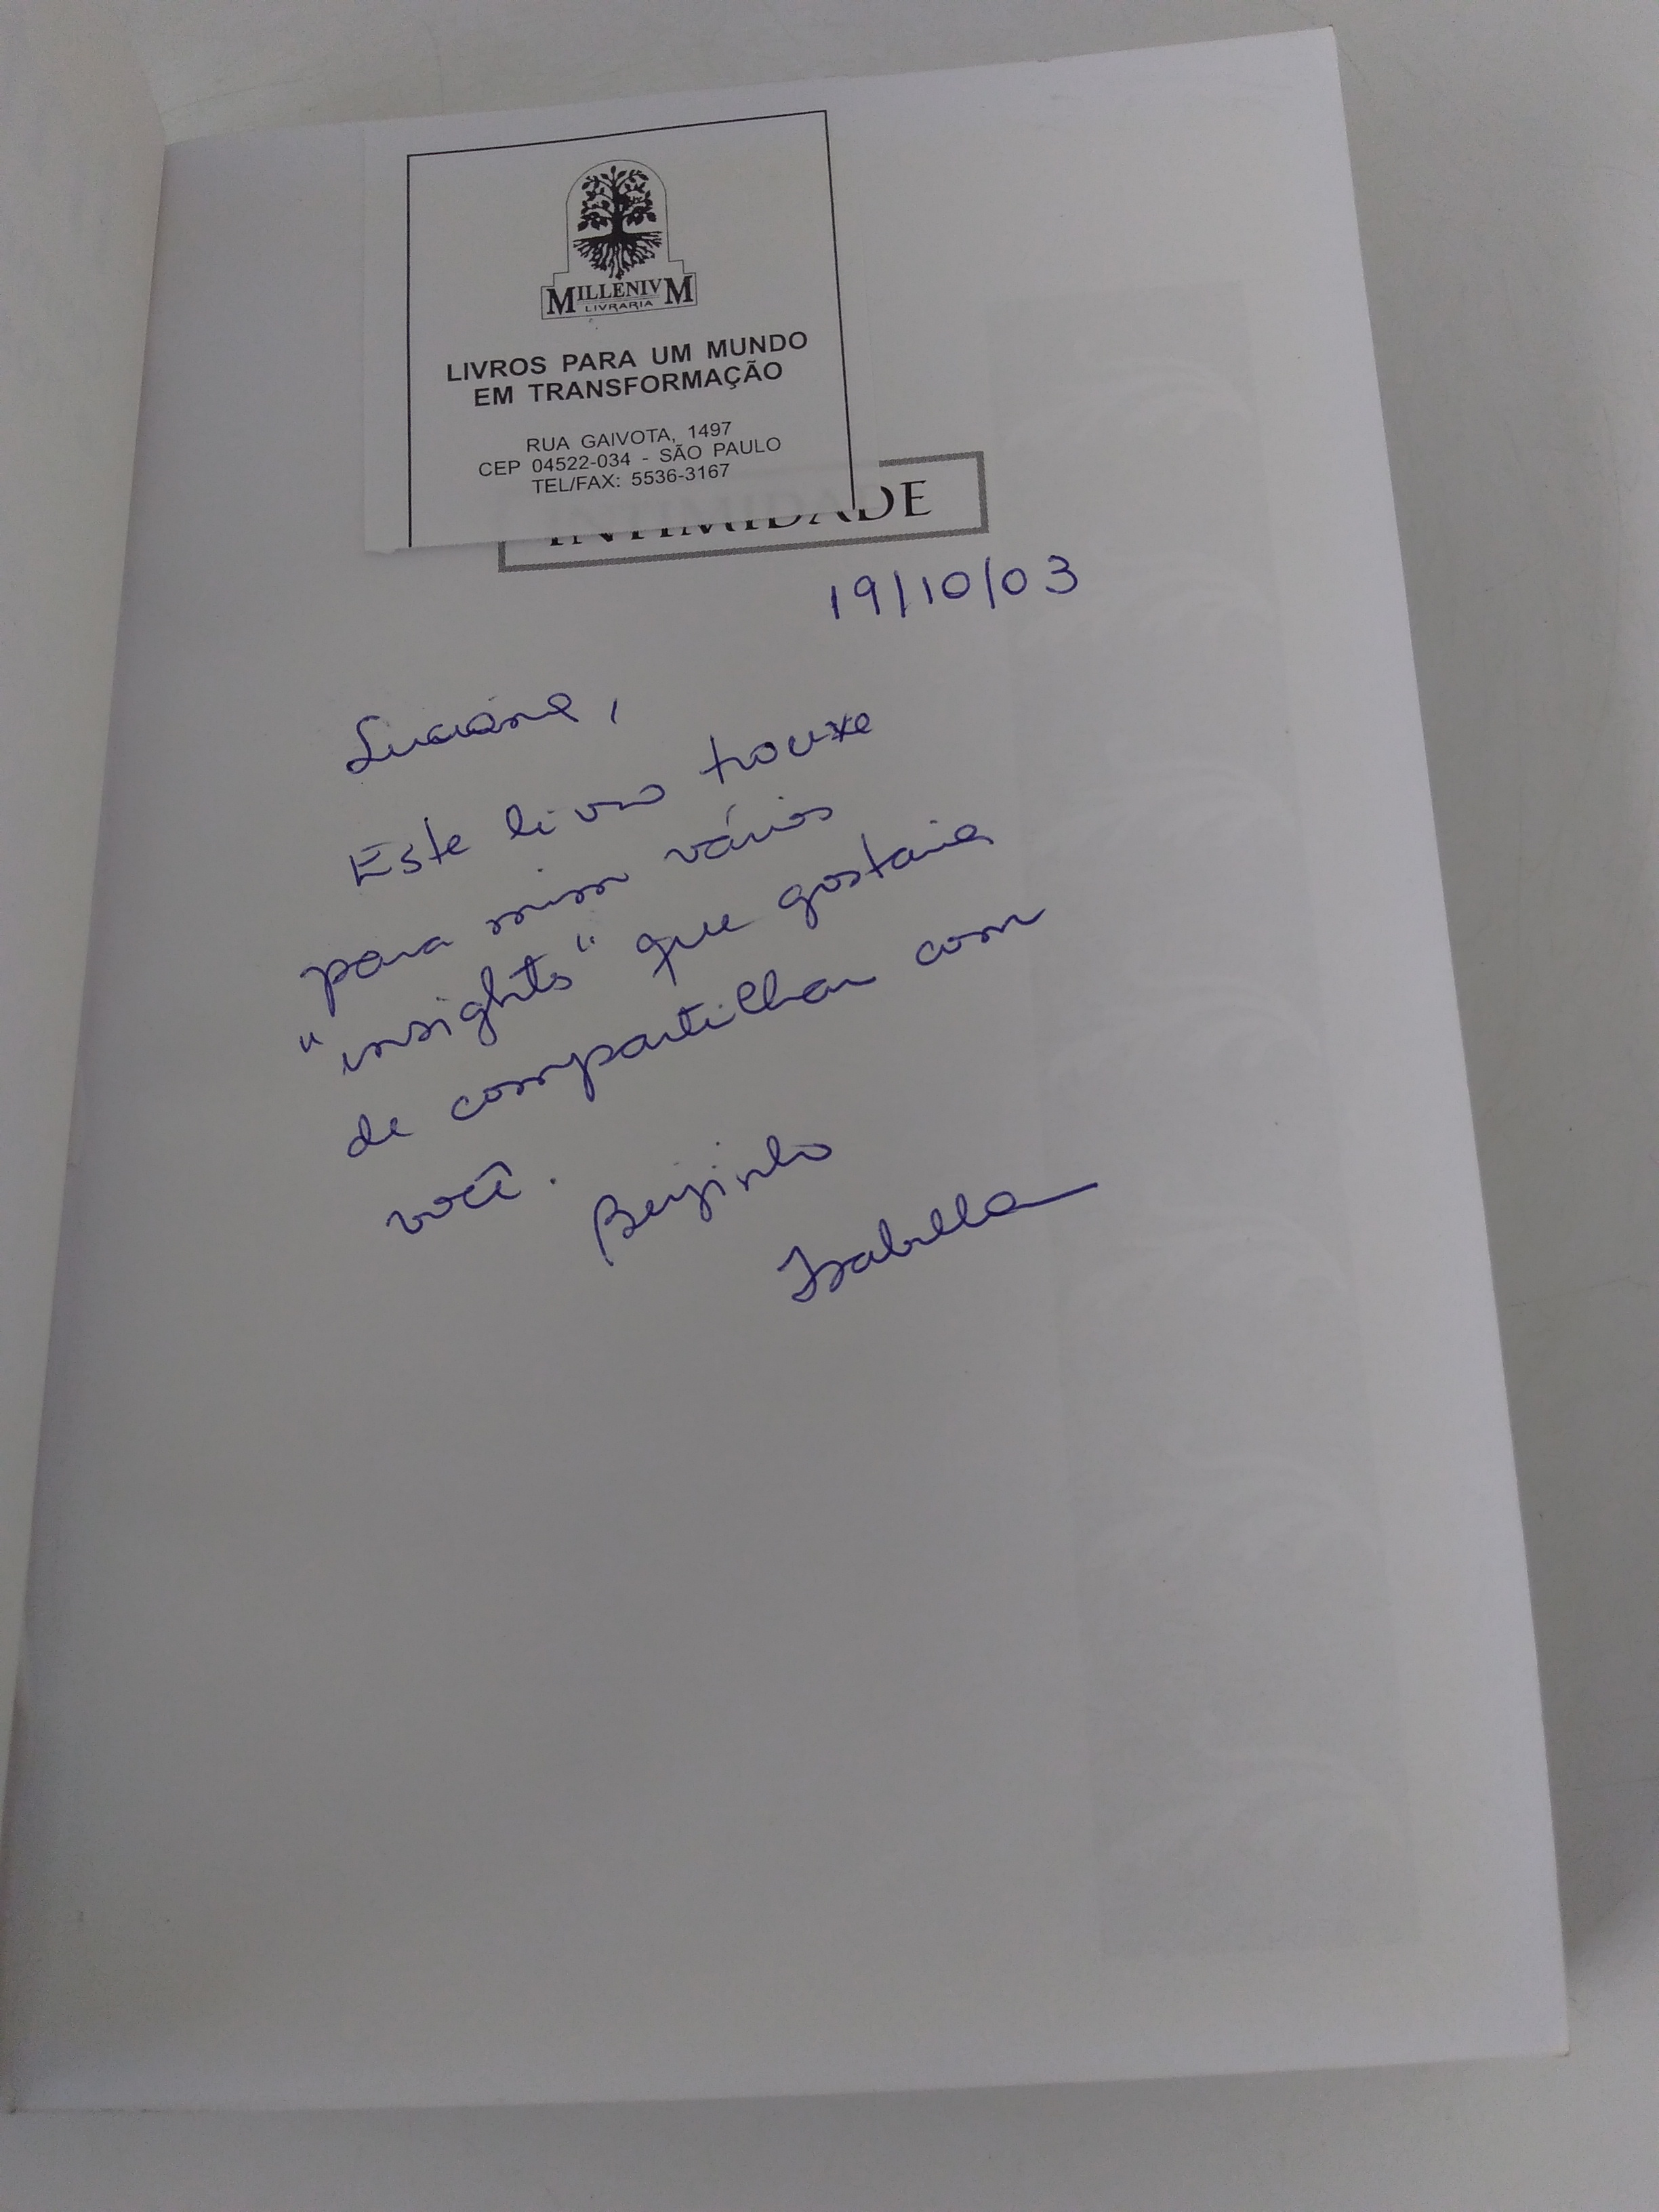 MILLENIVM
LIVRARIA
LIVROS PARA UM MUNDO
EM TRANSFORMAÇÃO
RUA GAIVOTA, 1497
CEP 04522-034 - SÃO PAULO
TEL/FAX: 5536-3167
INTIMIDADE
19/10/03
Luciana,
Este livro trouxe
para mim vários
"insights" que gostaria
de compartilhar com
você.
Beijinho
Isabella